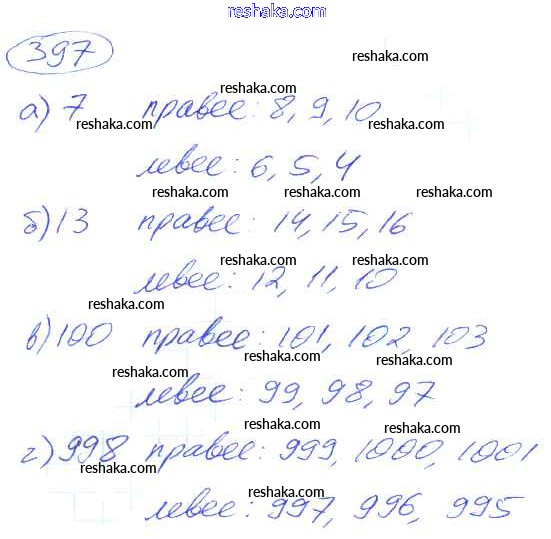 reshaka.com
397
reshaka.com
reshaka.com
а) 7 правее: 8, 9, 10
reshaka.com reshaka.com
левее: 6, 5, 4
reshaka.com reshaka.com
б) 13 правее: 14, 15, 16
reshaka.com
левее: 12, 11, 10
reshaka.com reshaka.com
в) 100 правее: 101, 102, 103
reshaka.com reshaka.com
левее: 99, 98, 97
reshaka.com
г) 998 правее: 999, 1000, 1001
reshaka.com reshaka.com
левее: 997, 996, 995
reshaka.com